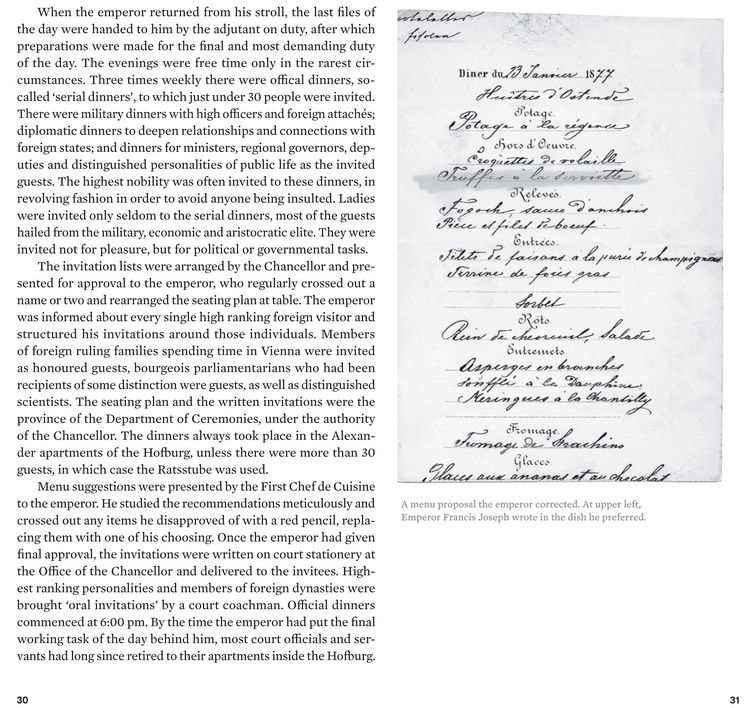 When the emperor returned from his stroll, the last files of
the day were handed to him by the adjutant on duty, after which
preparations were made for the final and most demanding duty
of the day. The evenings were free time only in the rarest cir-
cumstances. Three times weekly there were offical dinners, so-
called ‘serial dinners’, to which just under 30 people were invited.
There were military dinners with high officers and foreign attachés;
diplomatic dinners to deepen relationships and connections with
foreign states; and dinners for ministers, regional governors, dep-
uties and distinguished personalities of public life as the invited
guests. The highest nobility was often invited to these dinners, in
revolving fashion in order to avoid anyone being insulted. Ladies
were invited only seldom to the serial dinners, most of the guests
hailed from the military, economic and aristocratic elite. They were
invited not for pleasure, but for political or governmental tasks.
The invitation lists were arranged by the Chancellor and pre-
sented for approval to the emperor, who regularly crossed out a
name or two and rearranged the seating plan at table. The emperor
was informed about every single high ranking foreign visitor and
structured his invitations around those individuals. Members
of foreign ruling families spending time in Vienna were invited
as honoured guests, bourgeois parliamentarians who had been
recipients of some distinction were guests, as well as distinguished
scientists. The seating plan and the written invitations were the
province of the Department of Ceremonies, under the authority
of the Chancellor. The dinners always took place in the Alexan-
der apartments of the Hofburg, unless there were more than 30
guests, in which case the Ratsstube was used.
Menu suggestions were presented by the First Chef de Cuisine
to the emperor. He studied the recommendations meticulously and
crossed out any items he disapproved of with a red pencil, repla-
cing them with one of his choosing. Once the emperor had given
final approval, the invitations were written on court stationery at
the Office of the Chancellor and delivered to the invitees. High-
est ranking personalities and members of foreign dynasties were
brought ‘oral invitations’ by a court coachman. Official dinners
commenced at 6:00 pm. By the time the emperor had put the final
working task of the day behind him, most court officials and ser-
vants had long since retired to their apartments inside the Hofburg.
30
Dîner du 13 Janvier 1877
Huîtres d'Ostende
Potage.
Potage à la régence
Hors d'Oeuvre.
Croquettes de volaille
Truffes à la serviette
Relevés.
Fogosch, sauce d'anchois
Pièce et filet de boeuf.
Entrées.
Filets de faisans à la purée de champignons
Terrine de foies gras
Sorbet
Rôts.
Rein de chevreuil, Salade
Entremets.
Asperges en branches
Soufflé à la Dauphine
Meringues à la Chantilly
Fromage.
Fromage de Strachino
Glaces
Glaces aux ananas et au chocolat
A menu proposal the emperor corrected. At upper left,
Emperor Francis Joseph wrote in the dish he preferred.
31